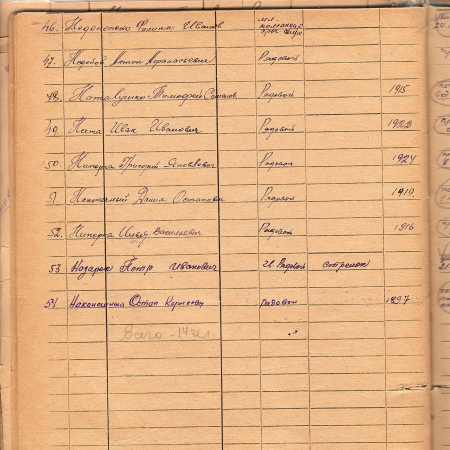 46. Недоножко Филипп Иванов мл. командир
47. Недобой Антон Афанасьевич Рядовой
48. Наталушко Тимофей Семенов Рядовой 1915
49. Непта Иван Иванович Рядовой 1922
50. Нипорка Григорий Яковлевич Рядовой 1924
51. Наконечный Данил Остапович Рядовой 1910
52. Нипорка Илья Васильевич Рядовой 1916
53 Назарок Петр Иванович Рядовой стрелок
54 Наконечный Остап Корнеевич рядовой 1897
Всего - 14 чел.